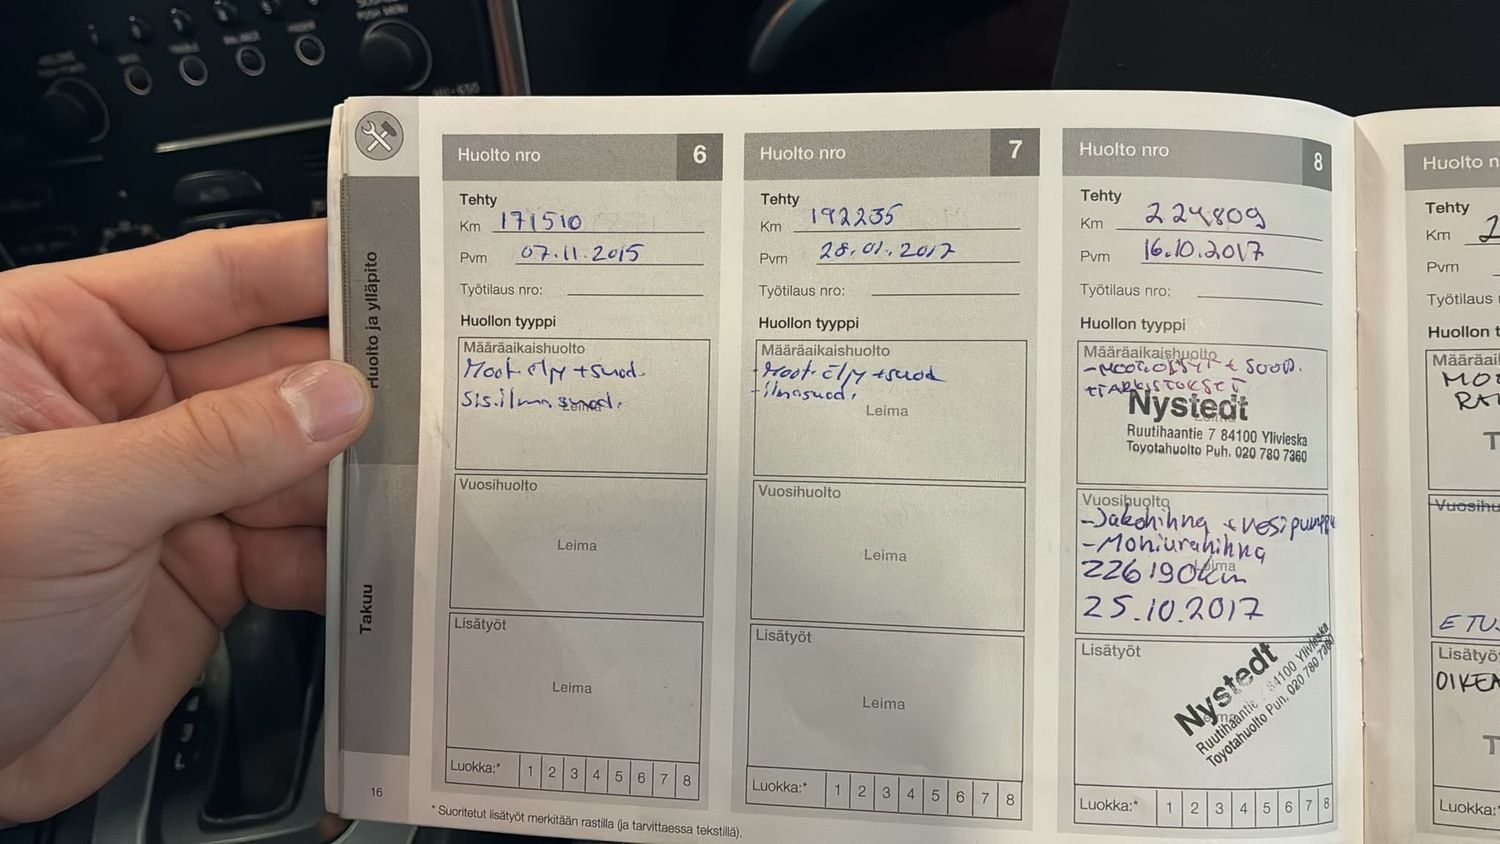 Huolto ja ylläpito
Takuu
16
Huolto nro 6
Tehty
Km 171510
Pvm 07.11.2015
Työtilaus nro:
Huollon tyyppi
Määräaikaishuolto
Moot. öljy + suod.
sis.ilma.suod.
Leima
Vuosihuolto
Leima
Lisätyöt
Leima
Luokka:* 1 2 3 4 5 6 7 8
* Suoritetut lisätyöt merkitään rastilla (ja tarvittaessa tekstillä).
Huolto nro 7
Tehty
Km 192235
Pvm 28.01.2017
Työtilaus nro:
Huollon tyyppi
Määräaikaishuolto
-Moot. öljy + suod
-ilmasuod.
Leima
Vuosihuolto
Leima
Lisätyöt
Leima
Luokka:* 1 2 3 4 5 6 7 8
Huolto nro 8
Tehty
Km 224809
Pvm 16.10.2017
Työtilaus nro:
Huollon tyyppi
Määräaikaishuolto
-MOOT.ÖLJYT + SUOD.
+TARKISTUKSET
Nystedt
Ruutihaantie 7 84100 Ylivieska
Toyotahuolto Puh. 020 780 7360
Vuosihuolto
-Jakohihna + vesipumppu
-Moniurahihna
Leima
226190km
25.10.2017
Lisätyöt
Nystedt
Ruutihaantie 7 84100 Ylivieska
Toyotahuolto Puh. 020 780 7360
Luokka:* 1 2 3 4 5 6 7 8
Huolto n
Tehty
Km 2
Pvm
Työtilaus
Huollon t
Määräai
RA
Vuosihu
ETUS
Lisätyö
OIKEA
Luokka:*